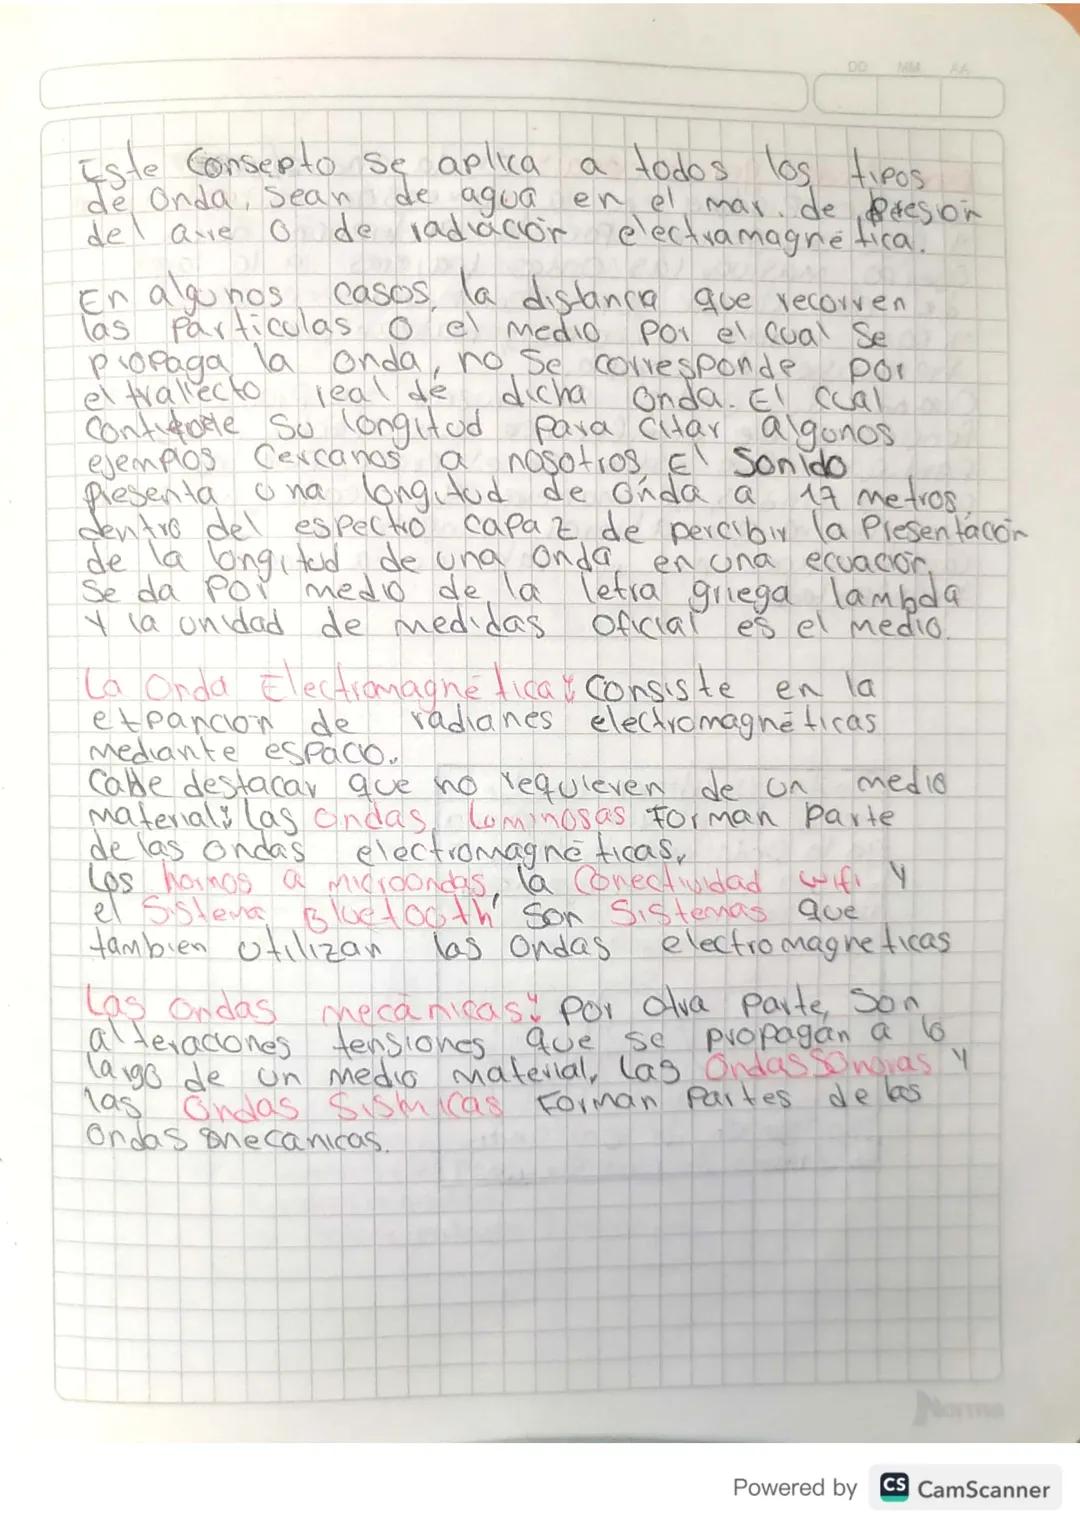 DD MM AA
Este Consepto se aplica a todos los tipos
de onda, sean de agua en el mar, de presion
del aire o de radiación electramagnética.
En algunos casos, la distancia que recorren
las particulas o el medio por el cual se
propaga la onda, no se corresponde por
el trallecto real de dicha onda. El cual
su longitud para citar algunos
ejemplos cercanos a nosotros, El sonido
presenta una longitud de onda a 17 metros,
dentro del espectro capaz de percibir la Presentación
de la longitud de una onda, en una ecuación,
se da por medio de la letra griega lambda
y la unidad de medidas oficial es el medio.
La Onda Electromagnética: consiste en la
expancion de radianes electromagnéticas
mediante espacio.
Cabe destacar que no requieren de un medio
material: las ondas luminosas forman parte
de las ondas electromagnéticas,
Los hornos a microondas, la Conectividad wifi y
el Sistema Bluetooth son Sistemas que
tambien utilizan las ondas electromagneticas
Las ondas mecánicas: por otra parte, son
alteraciones tensiones que se propagan a lo
largo de un medio material, las Ondas Sonoras y
las Ondas Sismicas Forman Partes de las
Ondas mecanicas.
Norma
Powered by CS CamScanner